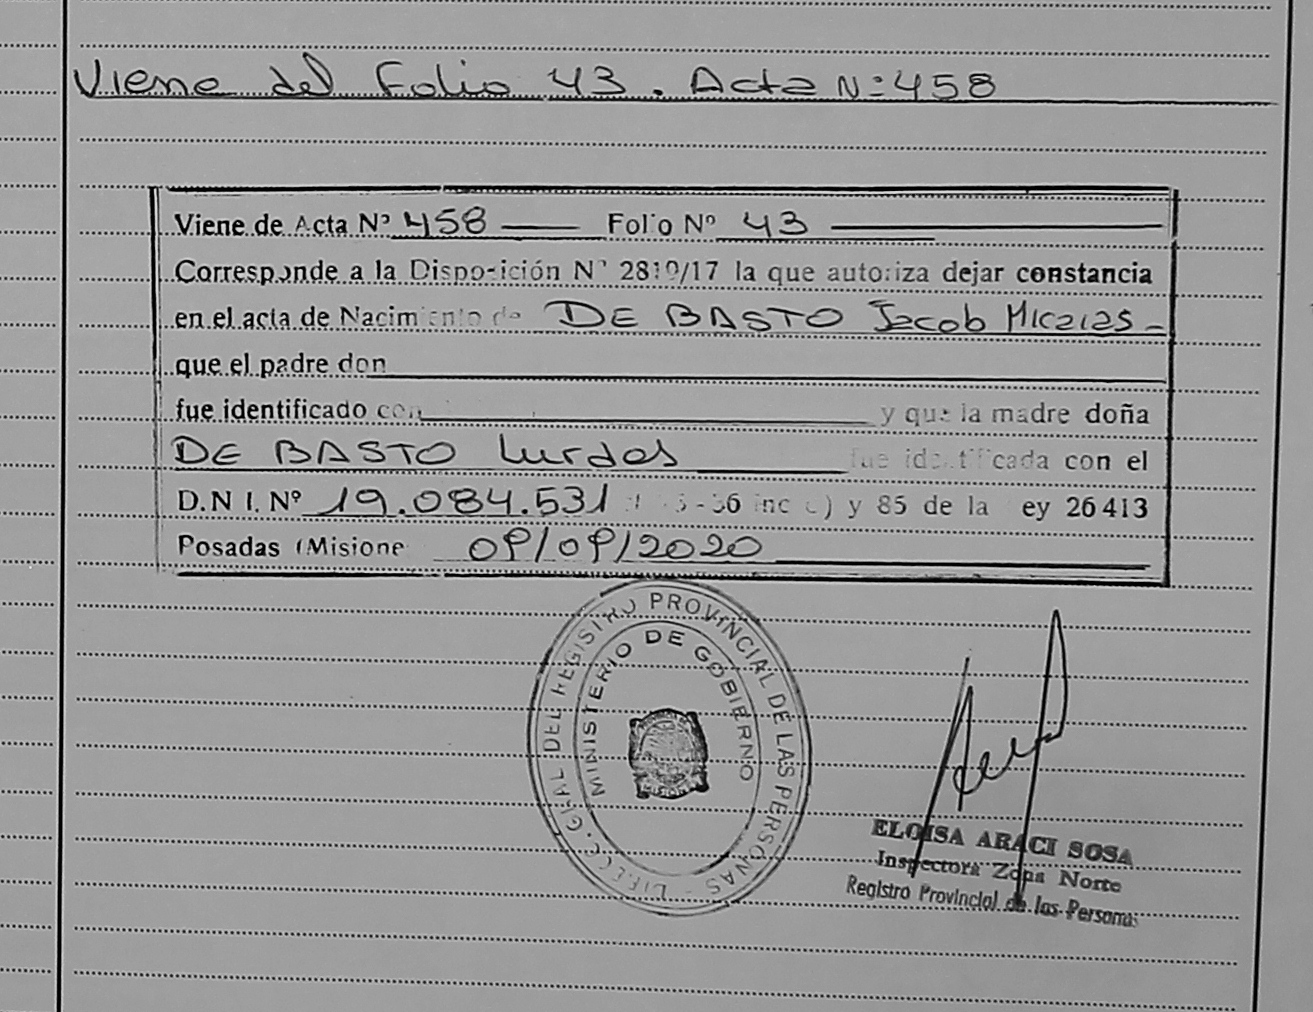 Viene del Folio 43. Acta N: 458
Viene de Acta Nº 458 Folio Nº 43
Corresponde a la Disposición Nº 2810/17 la que autoriza dejar constancia
en el acta de Nacimiento de DE BASTO Jacob Micaias
que el padre don
fue identificado con y que la madre doña
DE BASTO Lurdes fue identificada con el
D.N I. Nº 19.084.531 y 85 de la ey 26413
Posadas (Misione 09/09/2020
DIRECC. GRAL DEL REGISTRO PROVINCIAL DE LAS PERSONAS
MINISTERIO DE GOBIERNO
MISIONES
ELOISA ARACI SOSA
Inspectora Zona Norte
Registro Provincial de las Personas